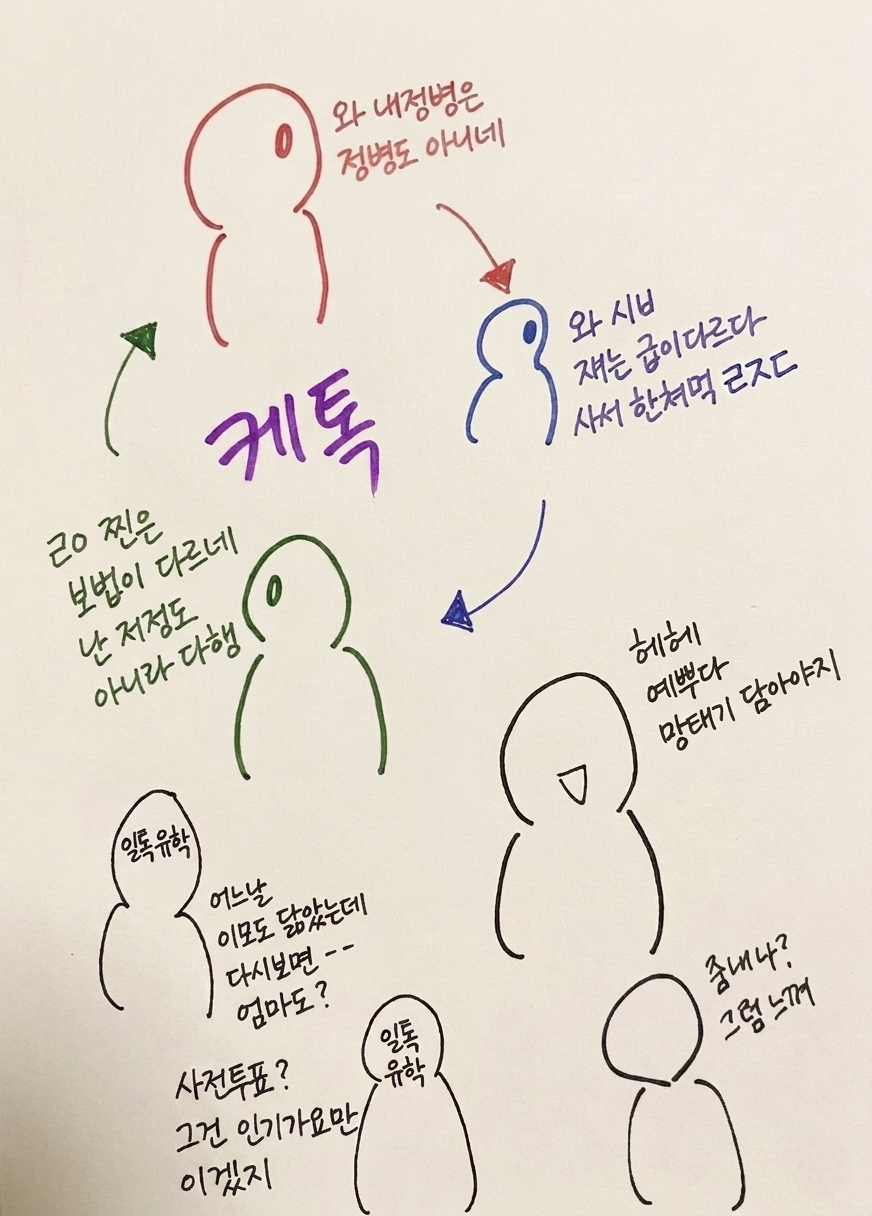 와 내정병은
정병도 아니네
와 시ㅂ
쟤는 급이다르다
사서 한쳐먹 ㄹㅈㄷ
케톡
ㄹㅇ 찐은
보법이 다르네
난 저정도
아니라 다행
헤헤
예뿌다
망태기 담아야지
일톡유학
어느날
이모도 닮았는데
다시보면 --
엄마도?
줌내나?
그럼 느껴
일톡
유학
사전투표?
그건 인기가요만
이겠지